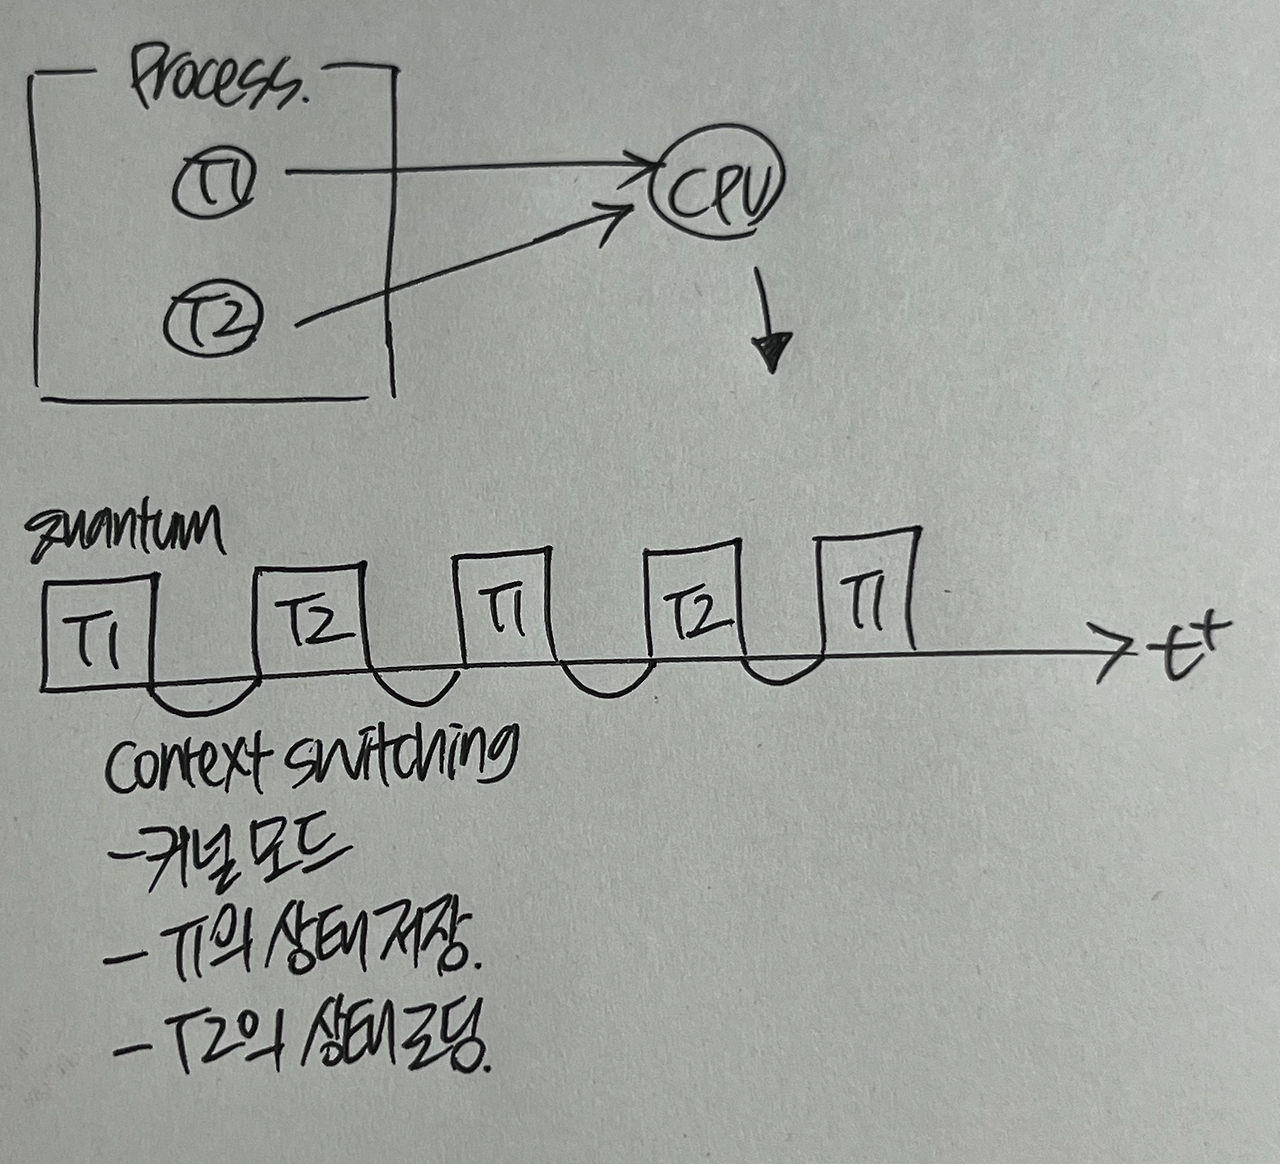 Process.
T1
CPU
T2
quantum
T1 T2 T1 T2 T1 t+
Context switching
-커널 모드
- T1의 상태 저장.
- T2의 상태 로딩.